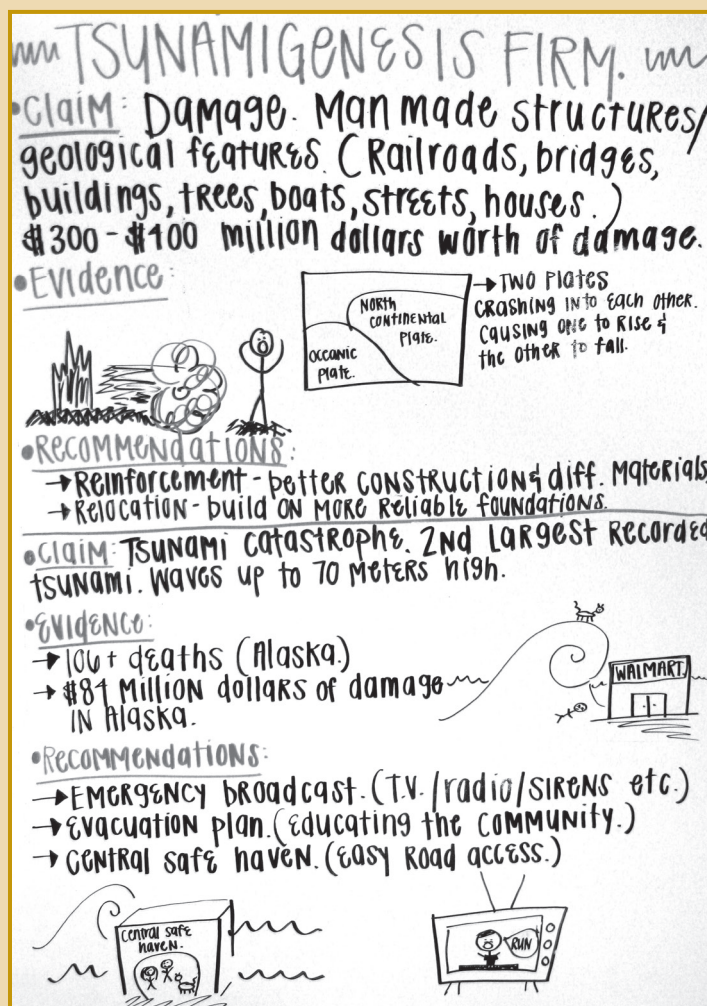 TSUNAMIGENESIS FIRM.
•Claim: Damage. Man made structures/
geological features. (Railroads, bridges,
buildings, trees, boats, streets, houses.)
$300-$400 million dollars worth of damage.
•Evidence:
→Two plates
crashing into each other.
causing one to rise &
the other to fall.
North
continental
plate.
Oceanic
plate.
•Recommendations:
→Reinforcement - better construction & diff. Materials
→Relocation - build on more reliable foundations.
•Claim: Tsunami catastrophe. 2nd Largest Recorded
tsunami. Waves up to 70 meters high.
•Evidence:
→106+ deaths (Alaska.)
→$84 Million dollars of damage
in Alaska.
WALMART.
•Recommendations:
→Emergency broadcast. (T.V./radio/sirens etc.)
→Evacuation plan. (Educating the community.)
→Central safe haven. (Easy Road access.)
Central safe
haven.
RUN